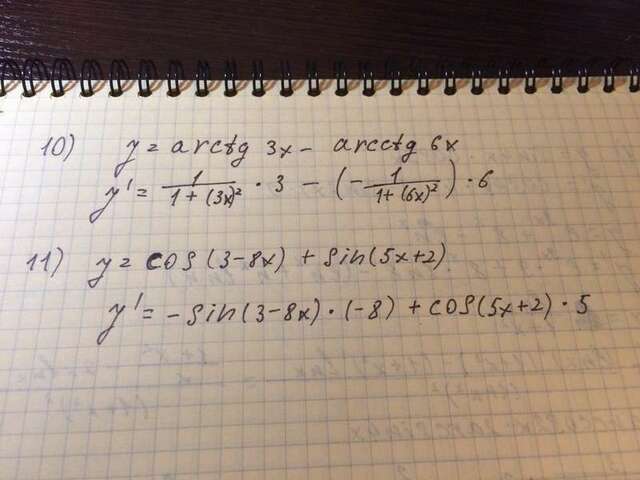 10) y = arctg 3x - arcctg 6x
y' = 1/(1 + (3x)²) · 3 - (- 1/(1 + (6x)²)) · 6
11) y = cos(3-8x) + sin(5x+2)
y' = -sin(3-8x) · (-8) + cos(5x+2) · 5